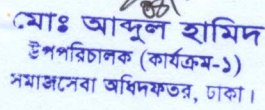 মোঃ আব্দুল হামিদ
উপপরিচালক (কার্যক্রম-১)
সমাজসেবা অধিদফতর, ঢাকা।